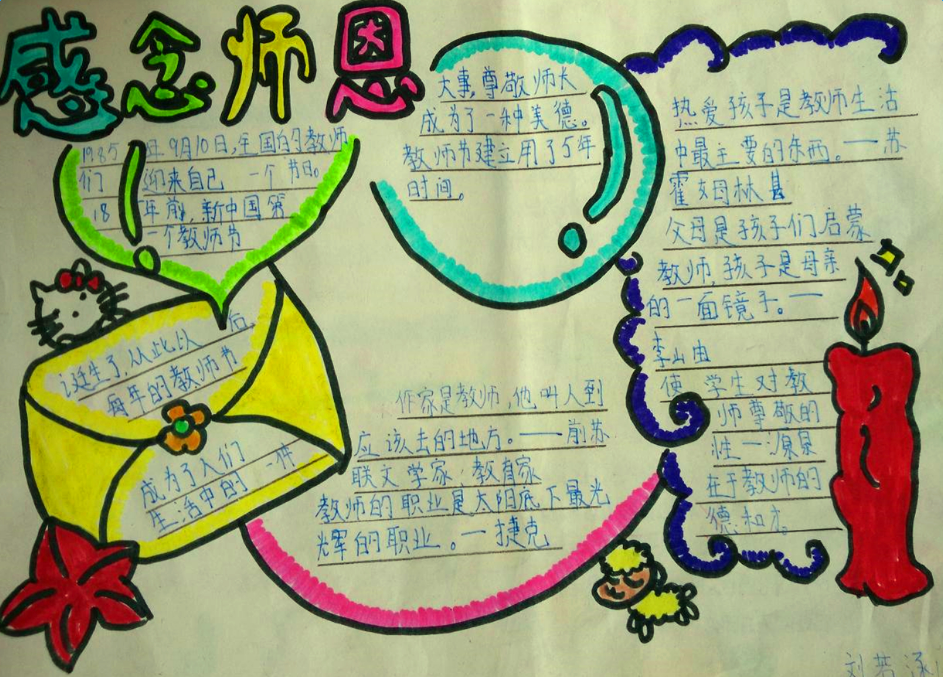 感念师恩
1985年9月10日,全国的教师
们迎来自己一个节日。
18年前,新中国第
一个教师节
诞生了,从此以后
每年的教师节
成为了人们
生活中的一件
大事,尊敬师长
成为了一种美德。
教师节建立用了5年
时间。
作家是教师,他叫人到
应该去的地方。——前苏
联文学家,教育家
教师的职业是太阳底下最光
辉的职业。—捷克
热爱孩子是教师生活
中最主要的东西。——苏
霍姆林
父母是孩子们启蒙
教师,孩子是母亲
的一面镜子。——
李山由
使学生对教
师尊敬的
唯一源泉
在于教师的
德和才。
刘若涵